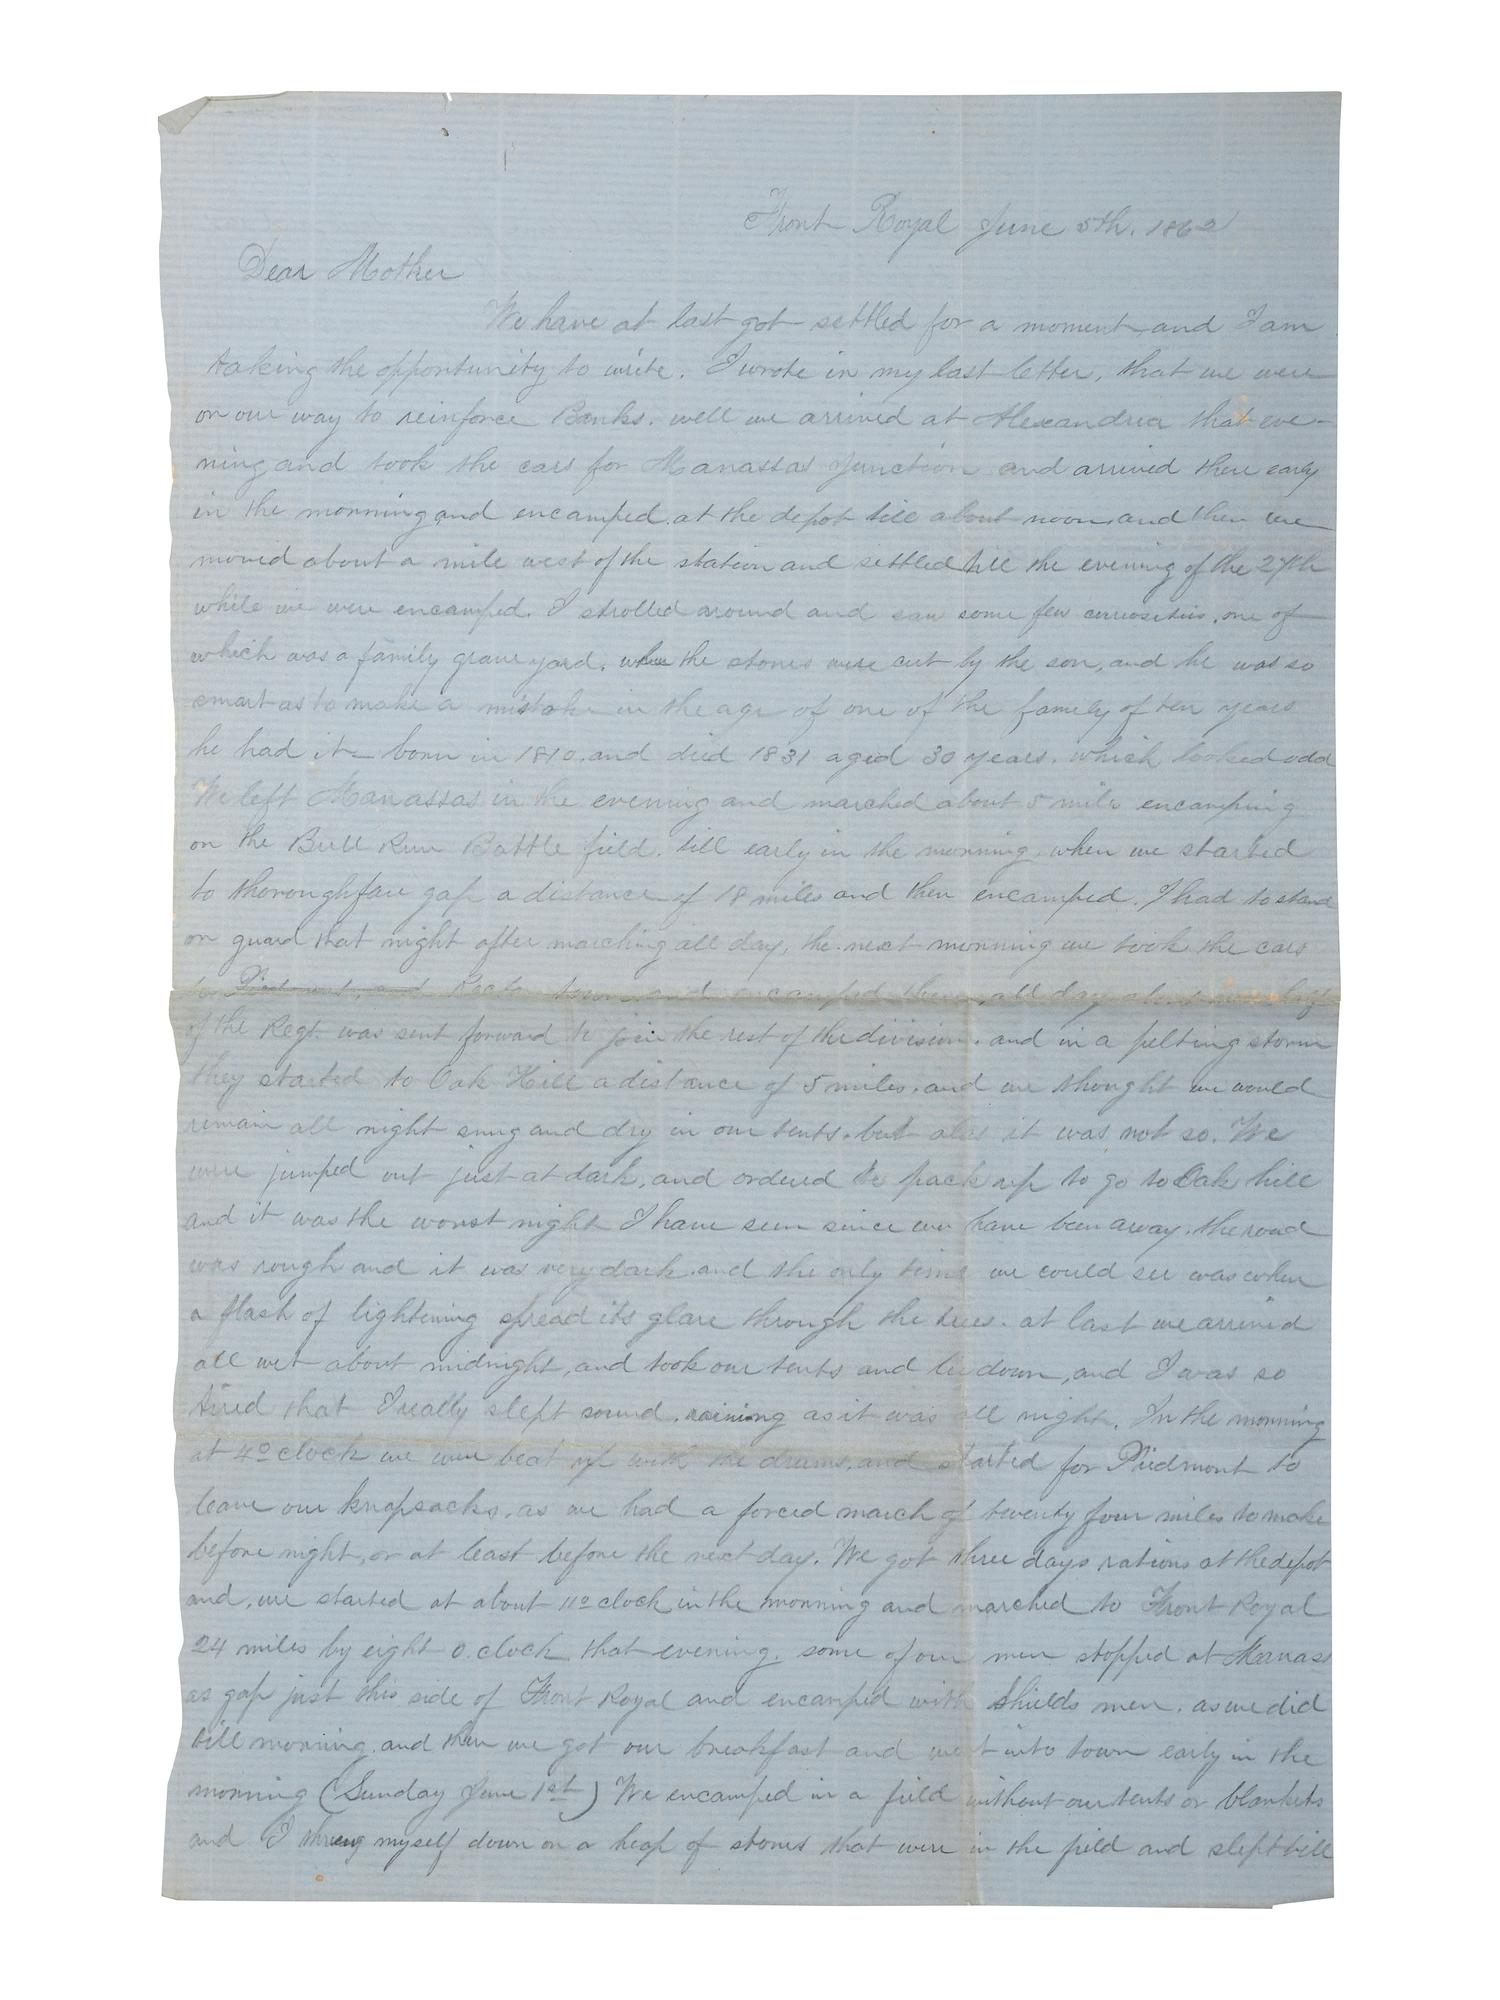 Front Royal June 5th. 1862
Dear Mother
We have at last got settled for a moment and I am
taking the opportunity to write. I wrote in my last letter, that we were
on our way to reinforce Banks. well we arrived at Alexandria that eve-
ning and took the cars for Manassas Junction and arrived there early
in the morning and encamped at the depot till about noon, and then we
moved about a mile west of the station and settled till the evening of the 27th
while we were encamped. I strolled around and saw some few curiosities, one of
which was a family grave yard, where the stones were cut by the son, and he was so
smart as to make a mistake in the age of one of the family of ten years
he had it born in 1810 and died 1831 aged 30 years, which looked odd
We left Manassas in the evening and marched about 5 mile encamping
on the Bull Run Battle field. till early in the morning, when we started
to thoroughfare gap a distance of 18 miles and then encamped. I had to stand
on guard that night after marching all day, the next morning we took the cars
to Piedmont, and Rector town and encamped there all day about one half
of the Regt. was sent forward to join the rest of the division, and in a pelting storm
they started to Oak Hill a distance of 5 miles, and we thought we would
remain all night snug and dry in our tents, but alas it was not so. We
were jumped out just at dark, and ordered to pack up to go to Oak hill
and it was the worst night I have seen since we have been away, the road
was rough and it was very dark and the only time we could see was when
a flash of lightening spread its glare through the trees. at last we arrived
all wet about midnight, and took our tents and lie down, and I was so
tired that I really slept sound, raining as it was all night. In the morning
at 4 o clock we were beat up with the drums, and started for Piedmont to
leave our knapsacks, as we had a forced march of twenty four miles to make
before night, or at least before the next day. We got three days rations at the depot
and, we started at about 11 o clock in the morning and marched to Front Royal
24 miles by eight O. clock that evening. some of our men stopped at Manass
as gap just this side of Front Royal and encamped with Shields men, as we did
till morning, and then we got our breakfast and went into town early in the
morning (Sunday June 1st) We encamped in a field without our tents or blankets
and I threw myself down on a heap of stones that were in the field and slept till